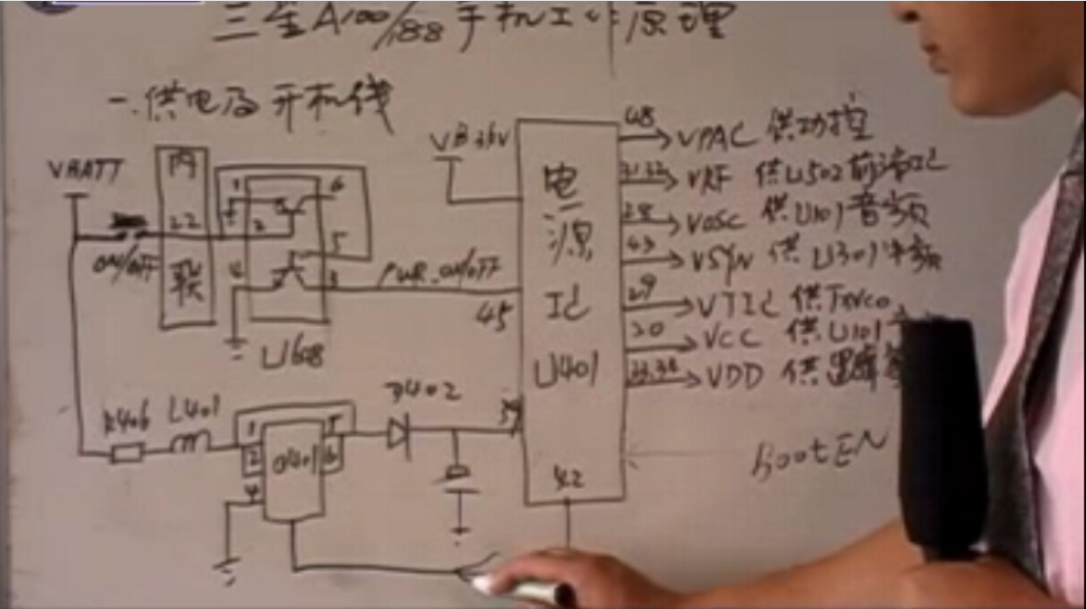 三星A100/188手机工作原理
一.供电及开机线
VBATT
ON/OFF
内
22
联
1
6
2
5
4
3
U608
PWR_ON/OFF
45
VB 3.6V
电
源
IC
U401
39
42
48 VPAC 供功控
VRF 供U502前端IC
28 VOSC 供U101音频
43 VSYN 供U301中频
29 VTIC 供TXVCO
20 VCC 供U101
VDD 供逻辑
BootEN
R406
L401
1
2
4
5
6
D402